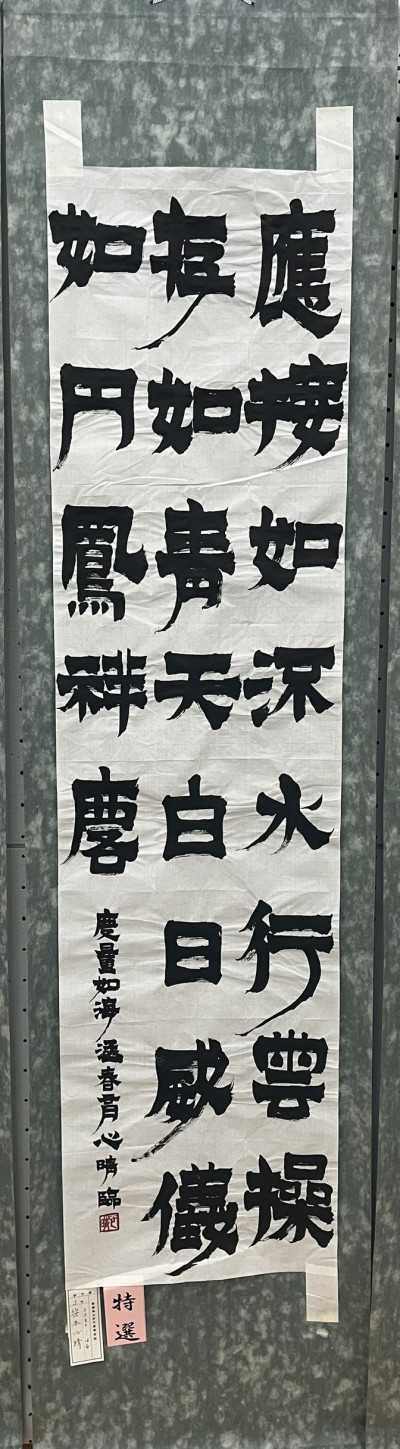 應接如流水行雲操
存如青天白日威儀
如丹鳳祥麐
度量如海涵春育心晴臨
特選